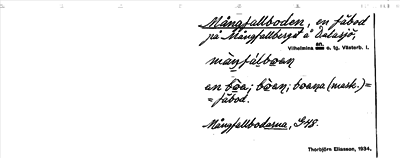 Mångfallboden, en fäbod
på Mångfallberget å Dalasjö,
Vilhelmina sn. o. tg. Västerb. l.
an bω̄a; bω̄an; boana (mark.) =
= fäbod.
Mångfallbodarna, G48.
Thorbjörn Eliasson, 1934.